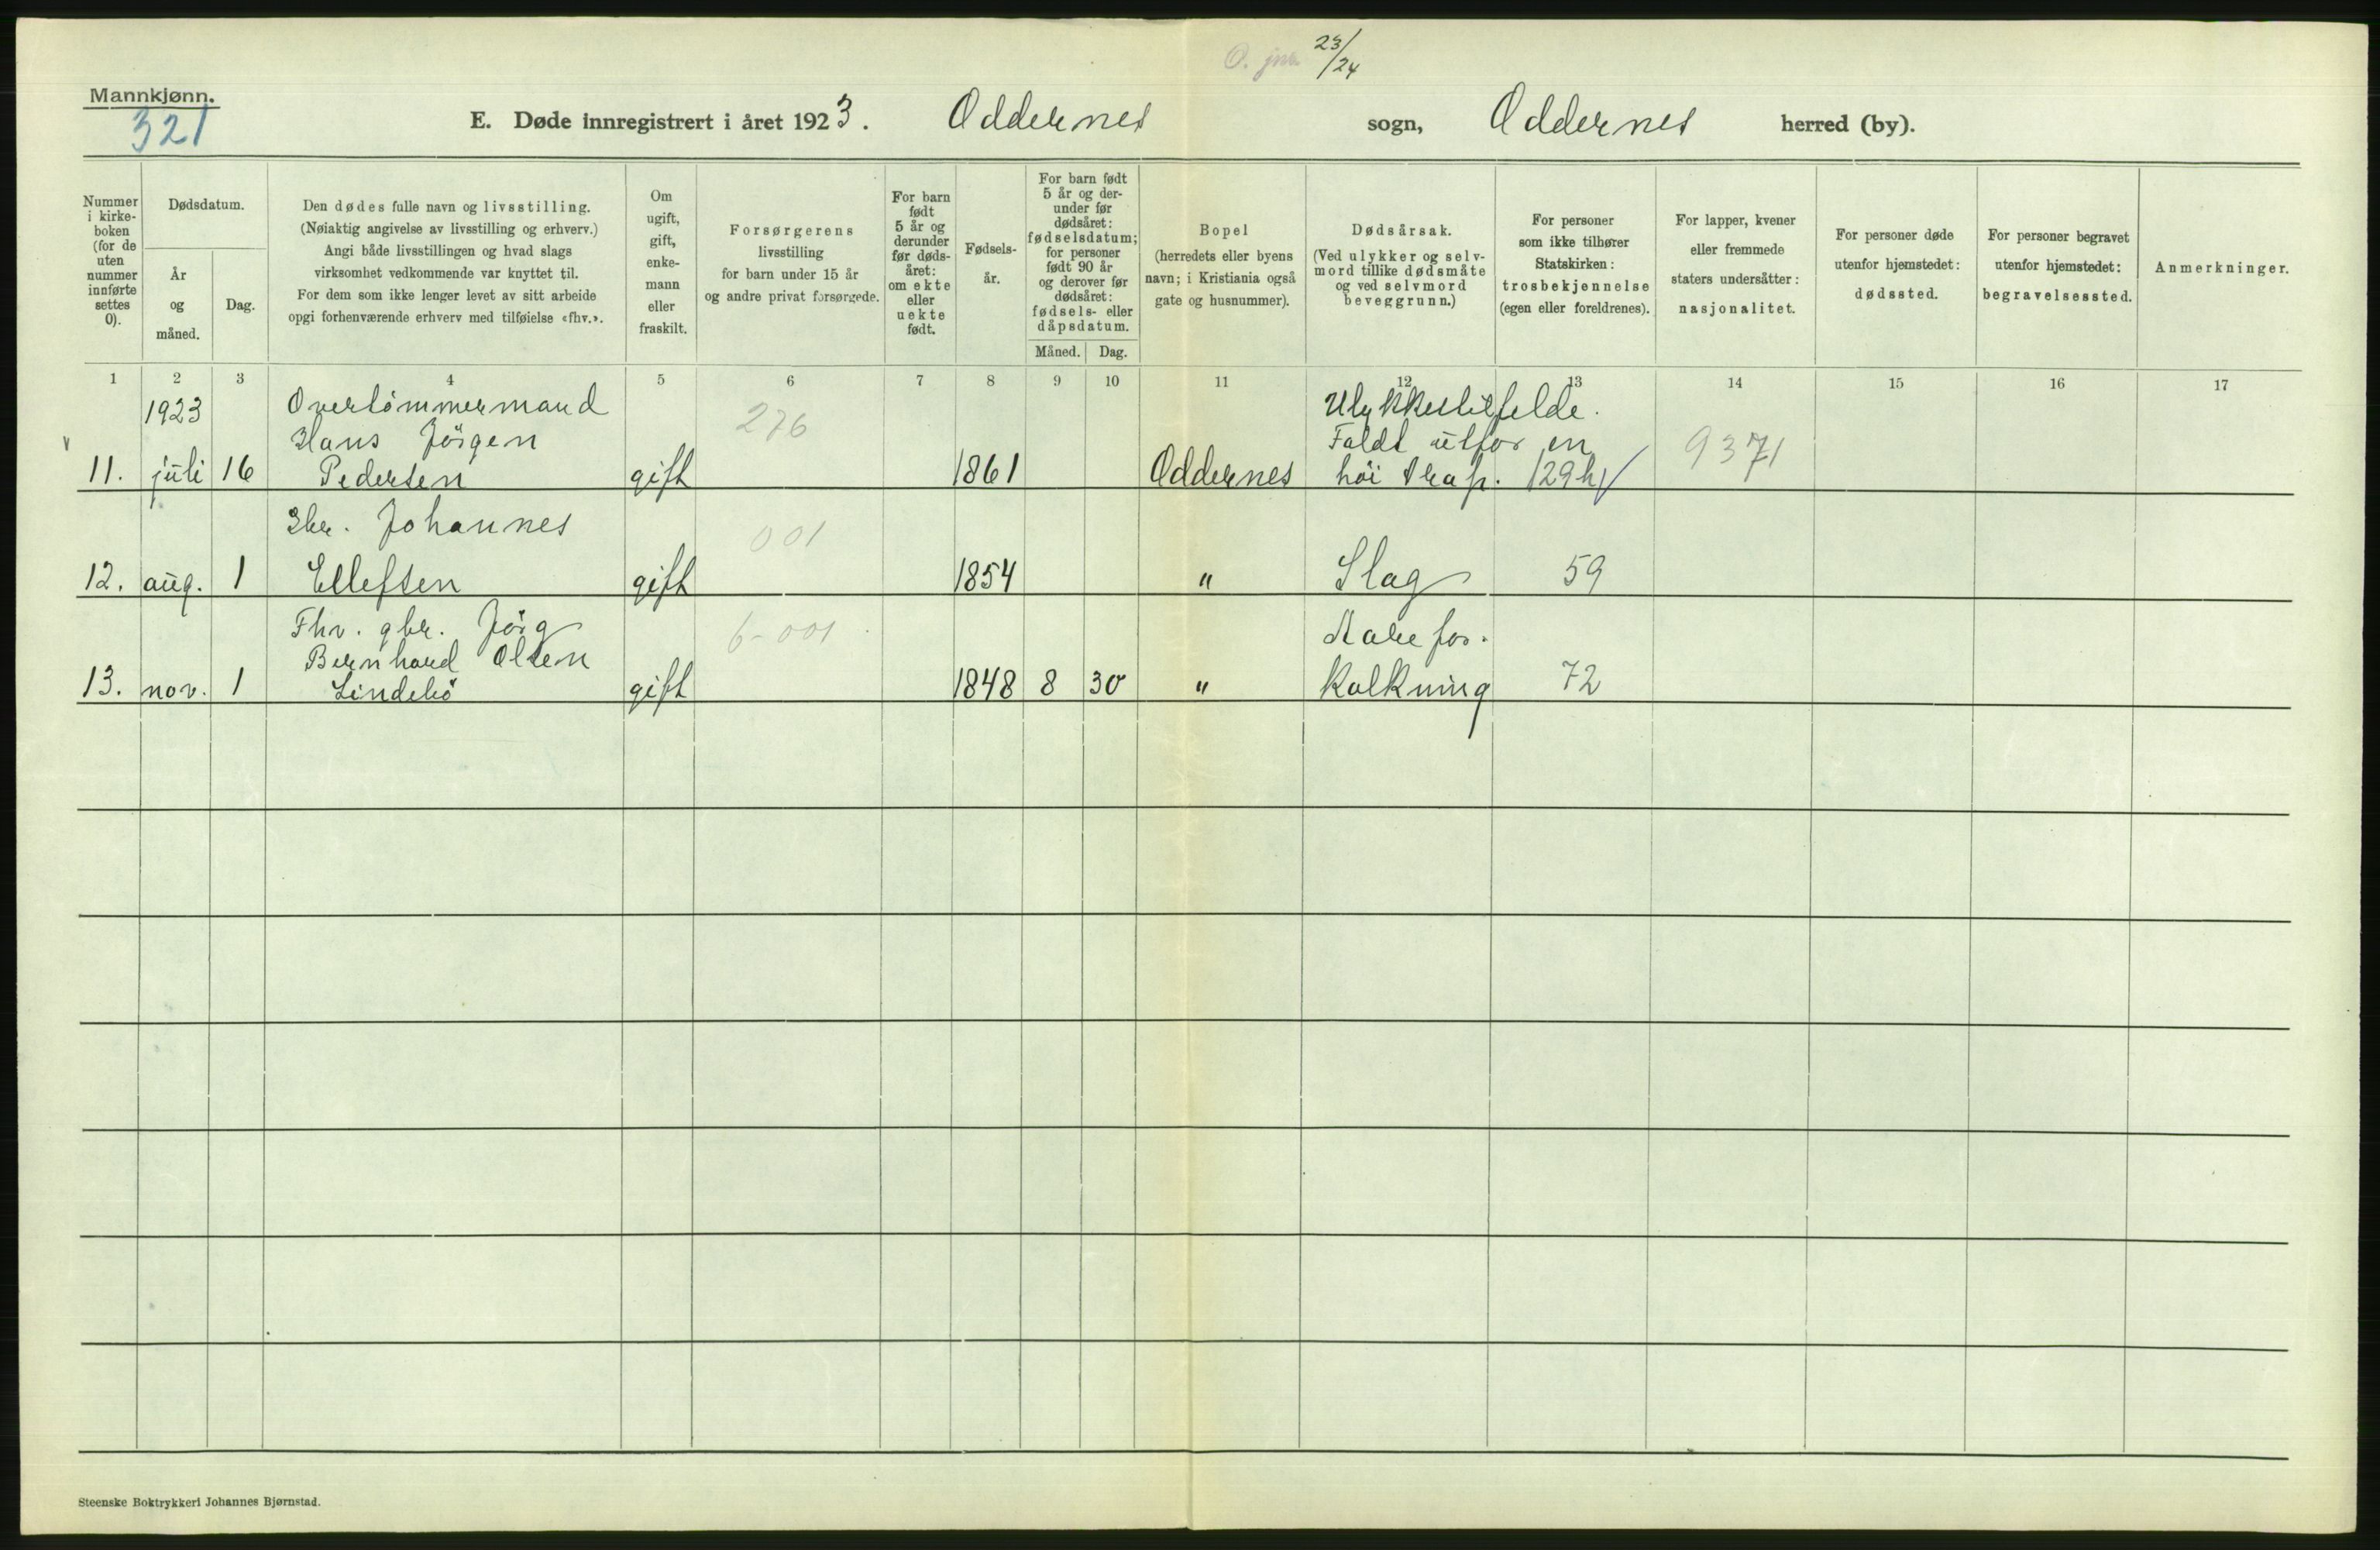 O. jnr. 23/24
Mannkjønn.
321
E. Døde innregistrert i året 1923. Oddernes sogn, Oddernes herred (by).
Nummer i kirke- boken (for de uten nummer innførte settes 0).
Dødsdatum.
År og måned.
Dag.
Den dødes fulle navn og livsstilling.
(Nøiaktig angivelse av livsstilling og erhverv.)
Angi både livsstillingen og hvad slags
virksomhet vedkommende var knyttet til.
For dem som ikke lenger levet av sitt arbeide
opgi forhenværende erhverv med tilføielse «fhv.».
Om ugift, gift, enke- mann eller fraskilt.
Forsørgerens
livsstilling
for barn under 15 år
og andre privat forsørgede.
For barn født 5 år og derunder før døds- året: om ekte eller uekte født.
Fødsels- år.
For barn født 5 år og der- under før dødsåret: fødselsdatum; for personer født 90 år og derover før dødsåret: fødsels- eller dåpsdatum.
Måned. Dag.
Bopel
(herredets eller byens
navn; i Kristiania også
gate og husnummer).
Dødsårsak.
(Ved ulykker og selv-
mord tillike dødsmåte
og ved selvmord
beveggrunn.)
For personer
som ikke tilhører
Statskirken:
trosbekjennelse
(egen eller foreldrenes).
For lapper, kvener
eller fremmede
staters undersåtter:
nasjonalitet.
For personer døde
utenfor hjemstedet:
dødssted.
For personer begravet
utenfor hjemstedet:
begravelsessted.
Anmerkninger.
1 2 3 4 5 6 7 8 9 10 11 12 13 14 15 16 17
1923 Overtömmermand 276 Ulykkestilfelde.
v Hans Jörgen Faldt utfor en 9371
11. juli 16 Pedersen gift 1861 Oddernes höi trap. 129h
Johannes 001
12. aug. 1 Ellefsen gift 1854 " Slag 59
Fhv. gbr. Jörg 6-001 Aarefor-
Bernhard Olsen
13. nov. 1 Lindebö gift 1848 8 30 " kalkning 72
Steenske Boktrykkeri Johannes Bjørnstad.